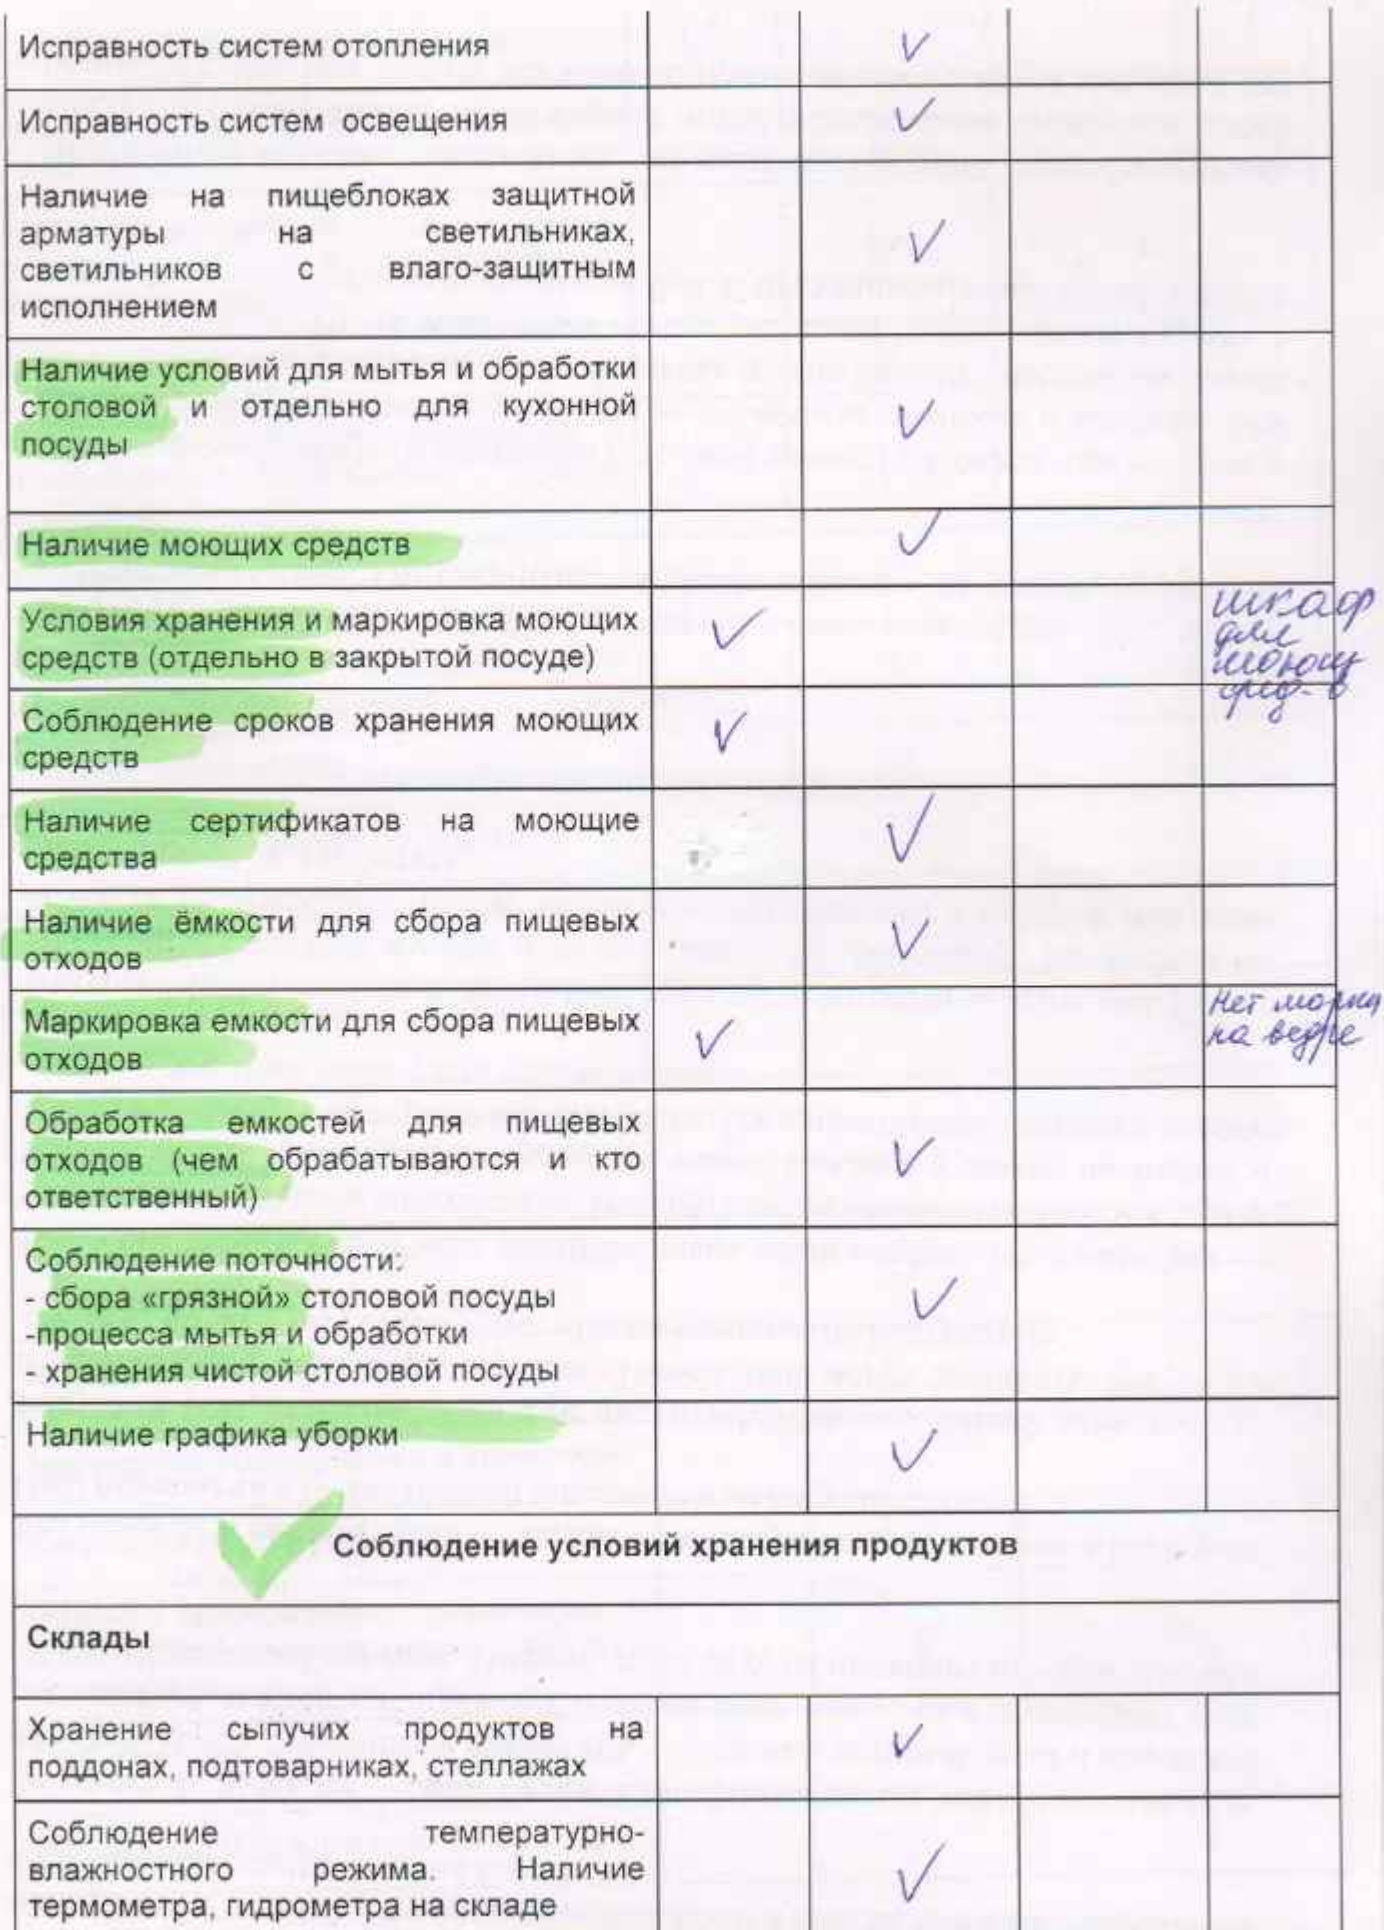 Исправность систем отопления
Исправность систем освещения
Наличие на пищеблоках защитной
арматуры на светильниках,
светильников с влаго-защитным
исполнением
Наличие условий для мытья и обработки
столовой и отдельно для кухонной
посуды
Наличие моющих средств
Условия хранения и маркировка моющих
средств (отдельно в закрытой посуде)
шкаф
для
моющ
сред-в
Соблюдение сроков хранения моющих
средств
Наличие сертификатов на моющие
средства
Наличие ёмкости для сбора пищевых
отходов
Маркировка емкости для сбора пищевых
отходов
Нет
на ведре
Обработка емкостей для пищевых
отходов (чем обрабатываются и кто
ответственный)
Соблюдение поточности:
- сбора «грязной» столовой посуды
-процесса мытья и обработки
- хранения чистой столовой посуды
Наличие графика уборки
Соблюдение условий хранения продуктов
Склады
Хранение сыпучих продуктов на
поддонах, подтоварниках, стеллажах
Соблюдение температурно-
влажностного режима. Наличие
термометра, гидрометра на складе